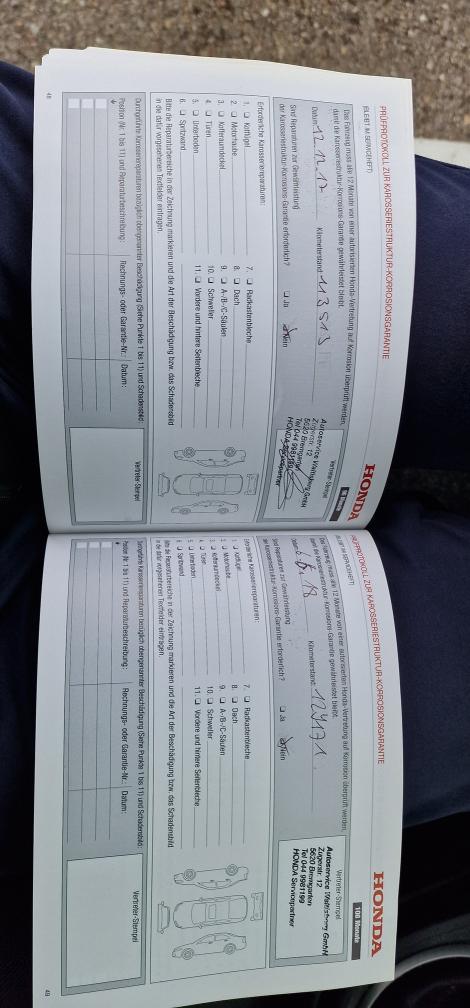 PRÜFPROTOKOLL ZUR KAROSSERIESTRUKTUR-KORROSIONSGARANTIE
HONDA
(BLEIBT IM SERVICEHEFT)
96 Monate
Das Fahrzeug muss alle 12 Monate von einer autorisierten Honda-Vertretung auf Korrosion überprüft werden,
damit die Karosseriestruktur-Korrosions-Garantie gewährleistet bleibt.
Datum: 12.12.17 Kilometerstand: 113513
Vertreter-Stempel
Autoservice GmbH
Zugerstr. 12
5620 Bremgarten
Tel 044 9981199
HONDA Servicepartner
Sind Reparaturen zur Gewährleistung
der Karosseriestruktur-Korrosions-Garantie erforderlich?
Ja
Nein
Erforderliche Karosseriereparaturen:
1. Kotflügel
2. Motorhaube
3. Kofferraumdeckel
4. Türen
5. Unterboden
6. Spritzwand
7. Radkastenbleche
8. Dach
9. A-/B-/C-Säulen
10. Schweller
11. Vordere und hintere Seitenbleche
Bitte die Reparaturbereiche in der Zeichnung markieren und die Art der Beschädigung bzw. das Schadensbild
in die dafür vorgesehenen Textfelder eintragen.
Durchgeführte Karosseriereparaturen bezüglich obengenannter Beschädigung (Siehe Punkte 1 bis 11) und Schadensbild:
Position (Nr. 1 bis 11) und Reparaturbeschreibung:
Rechnungs- oder Garantie-Nr.:
Datum:
Vertreter-Stempel
48
PRÜFPROTOKOLL ZUR KAROSSERIESTRUKTUR-KORROSIONSGARANTIE
HONDA
(BLEIBT IM SERVICEHEFT)
108 Monate
Das Fahrzeug muss alle 12 Monate von einer autorisierten Honda-Vertretung auf Korrosion überprüft werden,
damit die Karosseriestruktur-Korrosions-Garantie gewährleistet bleibt.
Datum: Kilometerstand:
Vertreter-Stempel
Autoservice GmbH
Zugerstr. 12
5620 Bremgarten
Tel 044 9981199
HONDA Servicepartner
Sind Reparaturen zur Gewährleistung
der Karosseriestruktur-Korrosions-Garantie erforderlich?
Ja
Nein
Erforderliche Karosseriereparaturen:
1. Kotflügel
2. Motorhaube
3. Kofferraumdeckel
4. Türen
5. Unterboden
6. Spritzwand
7. Radkastenbleche
8. Dach
9. A-/B-/C-Säulen
10. Schweller
11. Vordere und hintere Seitenbleche
Bitte die Reparaturbereiche in der Zeichnung markieren und die Art der Beschädigung bzw. das Schadensbild
in die dafür vorgesehenen Textfelder eintragen.
Durchgeführte Karosseriereparaturen bezüglich obengenannter Beschädigung (Siehe Punkte 1 bis 11) und Schadensbild:
Position (Nr. 1 bis 11) und Reparaturbeschreibung:
Rechnungs- oder Garantie-Nr.:
Datum:
Vertreter-Stempel
49